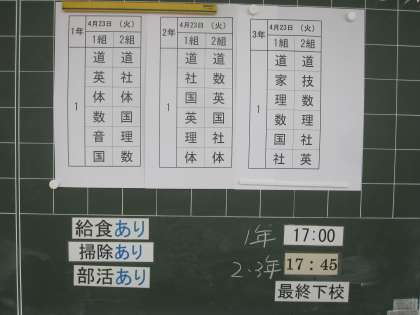 1年 4月23日 (火)
1組 2組
1
道 道
英 社
体 体
数 国
音 理
国 数
2年 4月23日 (火)
1組 2組
1
道 道
社 数
国 英
英 国
理 社
体 体
3年 4月23日 (火)
1組 2組
1
道 道
家 技
理 数
数 理
国 社
社 英
給食あり
掃除あり
部活あり
1年 17:00
2・3年 17:45
最終下校